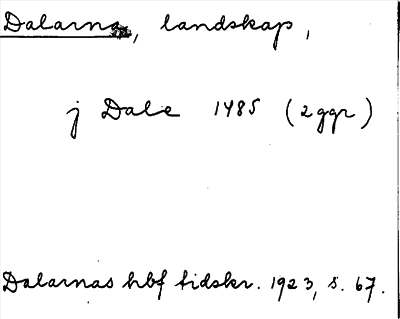 Dalarna, landskap,
j Dale 1485 (2 ggr)
Dalarnas hbf tidskr. 1923, s. 67.